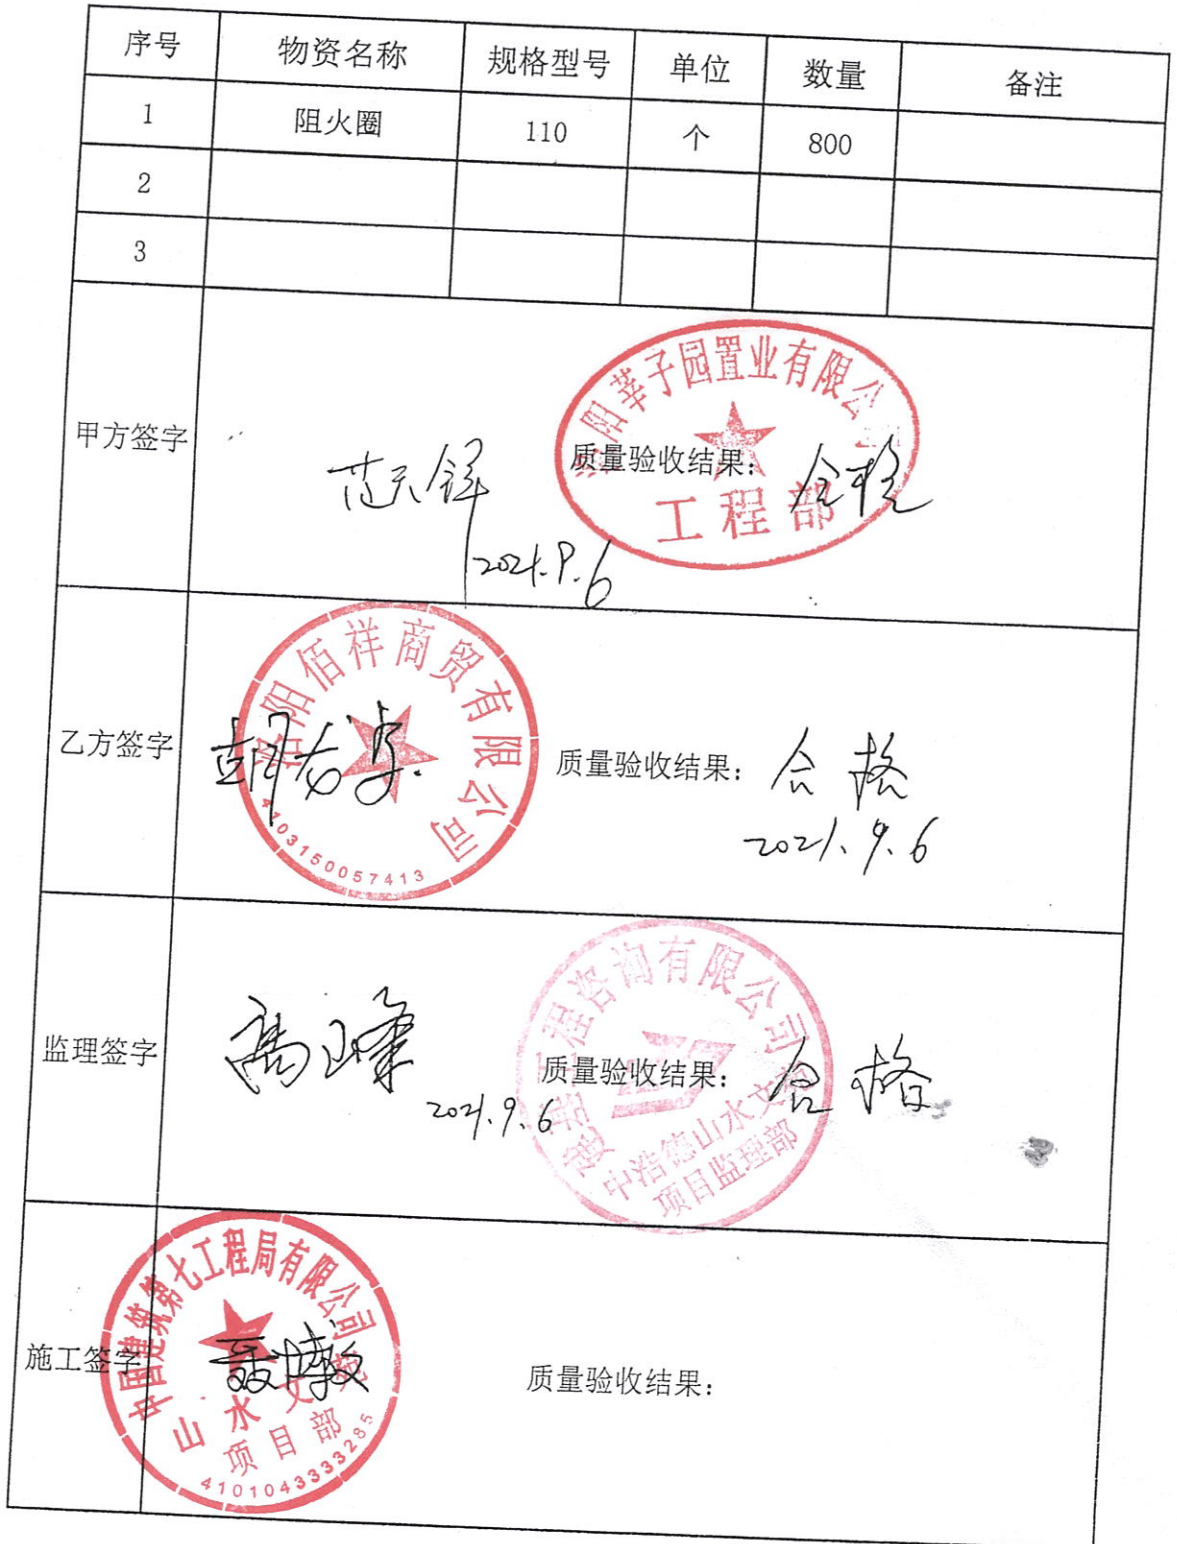 序号 物资名称 规格型号 单位 数量 备注
1 阻火圈 110 个 800
2
3
甲方签字
阳莘子园置业有限公
工程部
质量验收结果：合格
2021.9.6
乙方签字
洛阳佰祥商贸有限公司
4103150057413
质量验收结果：合格
2021.9.6
监理签字
工程咨询有限公司
中浩德山水文
项目监理部
质量验收结果：合格
2021.9.6
施工签字
中国建筑第七工程局有限公司
山水文
项目部
4101043333285
质量验收结果：